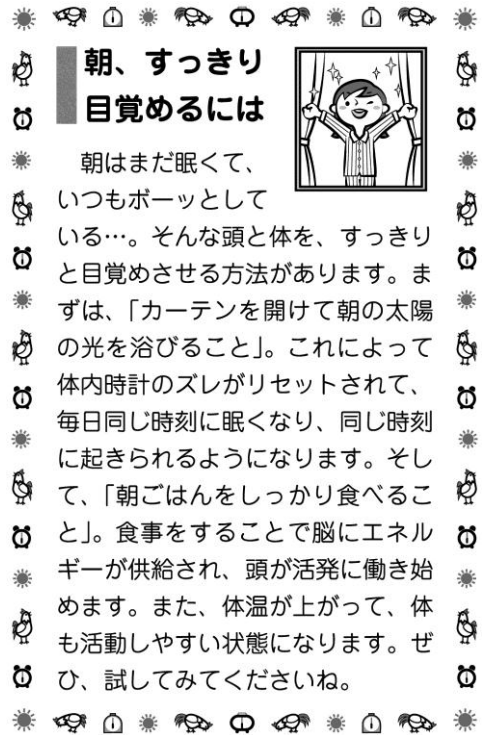 朝、すっきり
目覚めるには
　朝はまだ眠くて、
いつもボーッとして
いる…。そんな頭と体を、すっきり
と目覚めさせる方法があります。ま
ずは、「カーテンを開けて朝の太陽
の光を浴びること」。これによって
体内時計のズレがリセットされて、
毎日同じ時刻に眠くなり、同じ時刻
に起きられるようになります。そし
て、「朝ごはんをしっかり食べるこ
と」。食事をすることで脳にエネル
ギーが供給され、頭が活発に働き始
めます。また、体温が上がって、体
も活動しやすい状態になります。ぜ
ひ、試してみてくださいね。